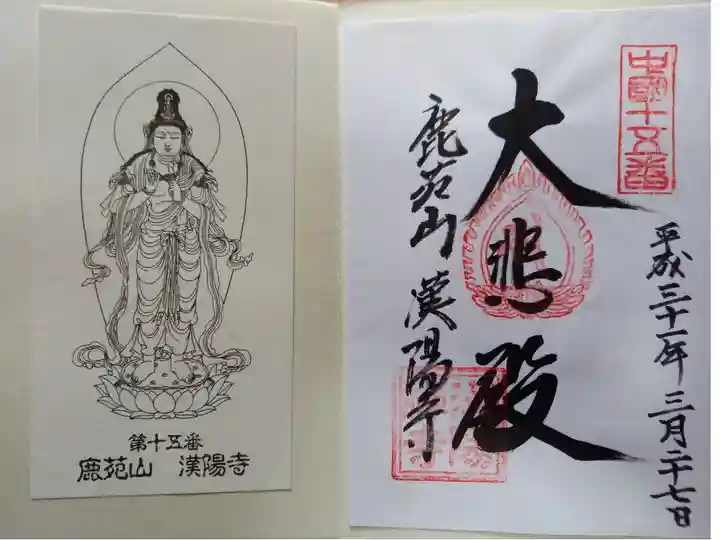 第十五番
鹿苑山 漢陽寺
中國十五番
平成三十一年三月二十七日
大悲殿
鹿苑山 漢陽寺